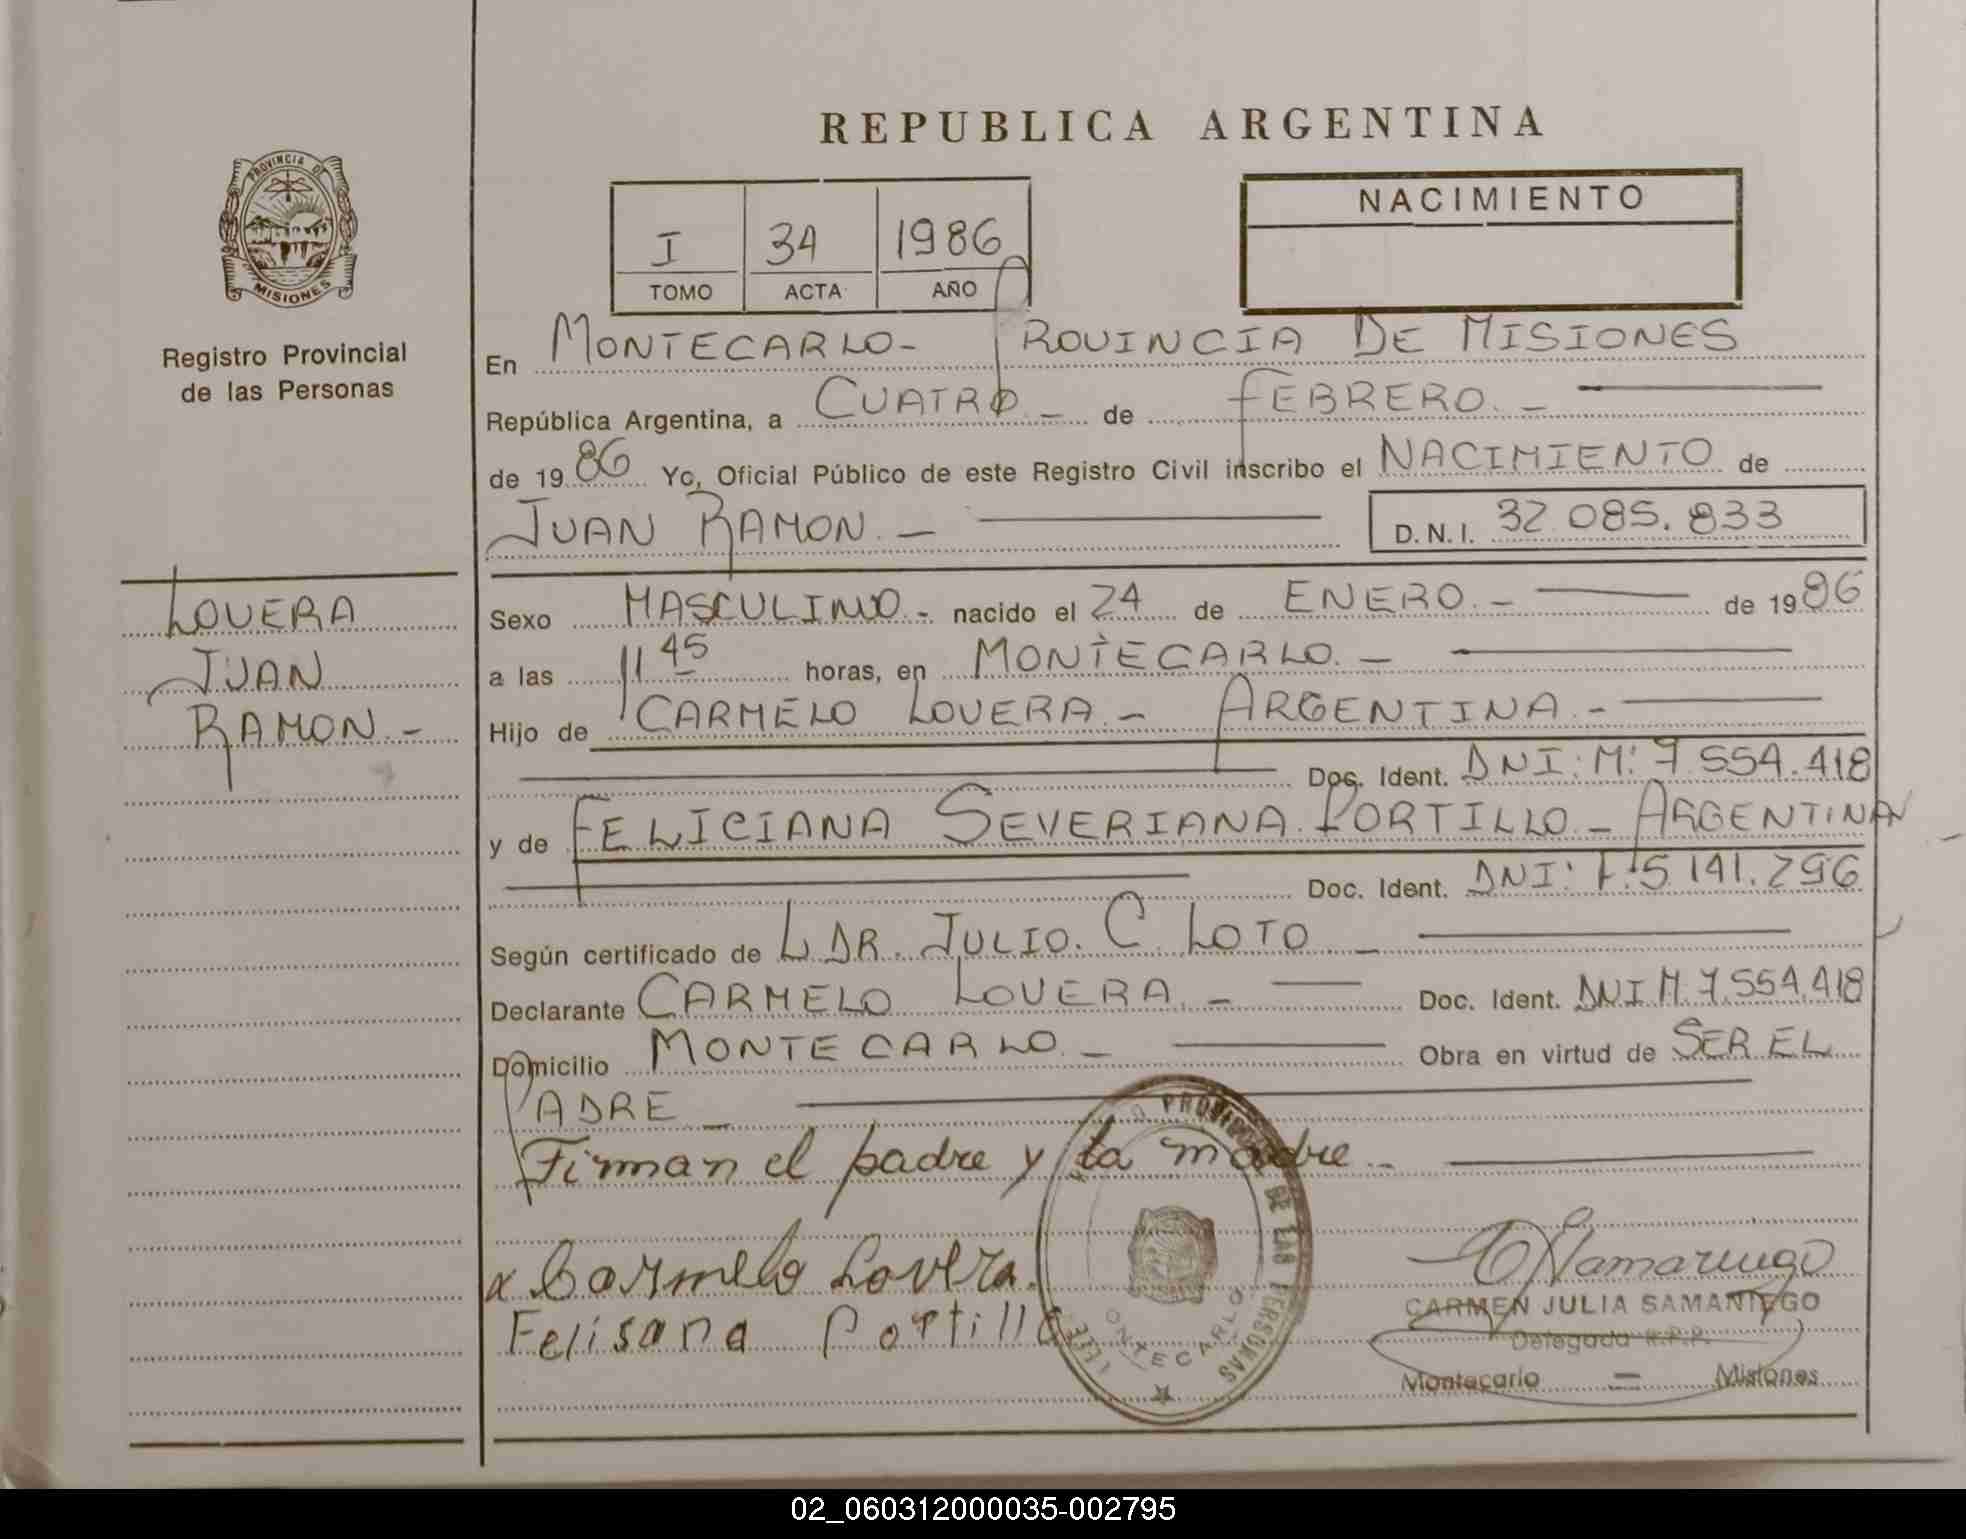 REPUBLICA ARGENTINA
PROVINCIA DE
MISIONES
Registro Provincial
de las Personas
I 34 1986
TOMO ACTA AÑO
NACIMIENTO
En MONTECARLO- PROVINCIA DE MISIONES
República Argentina, a CUATRO - de FEBRERO. -
de 1986 Yo, Oficial Público de este Registro Civil inscribo el NACIMIENTO de
JUAN RAMON. - D.N.I. 32.085.833
LOVERA
JUAN
RAMON. -
Sexo MASCULINO. - nacido el 24 de ENERO. - de 1986
a las 11 45 horas, en MONTECARLO. -
Hijo de CARMELO LOVERA - ARGENTINA. -
Doc. Ident. DNI: M: 7.554.418
y de FELICIANA SEVERIANA PORTILLO - ARGENTINA
Doc. Ident. DNI: F. 5.141.296
Según certificado de L DR. JULIO. C. LOTO -
Declarante CARMELO LOVERA. - Doc. Ident. DNI M. 7.554.418
Domicilio MONTECARLO - Obra en virtud de SER EL
PADRE -
Firman el padre y la madre. -
x Carmelo Lovera.
Felisana Portillo
PROVINCIAL DE LAS PERSONAS
MONTECARLO
CARMEN JULIA SAMANIEGO
Delegada R.P.P.
Montecarlo - Misiones
02_060312000035-002795